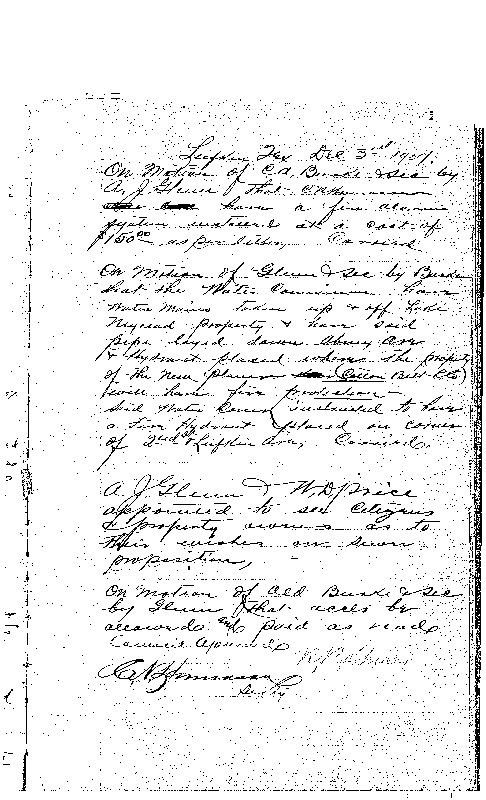 Lufkin Tex Dec 3rd 1907.
On Motion of C.A. Burke & sec by
A. J Glenn that C.N.
have a fire alarm
system installed at a cost of
$150.00 as per letter, Carried
On Motion of Glenn & sec by Burke
that the Water Commissioner have
Water Mains taken up & off Luke
property & have said
pipe layed down Abney Ave
& Hydrant placed where the property
of the New Planing Cotton Belt Etc
will have fire protection
Said Water Comm instructed to have
a Fire Hydrant placed on corner
of 2nd & Lufkin Ave, Carried
A. J Glenn & W. D. Price
appointed to see Citizens
& property owners as to
their wishes on sewer
proposition,
On Motion of Ald Burke & sec
by Glenn that accts be
allowed and paid as read
Council Adjourned
C N Humason
Secty